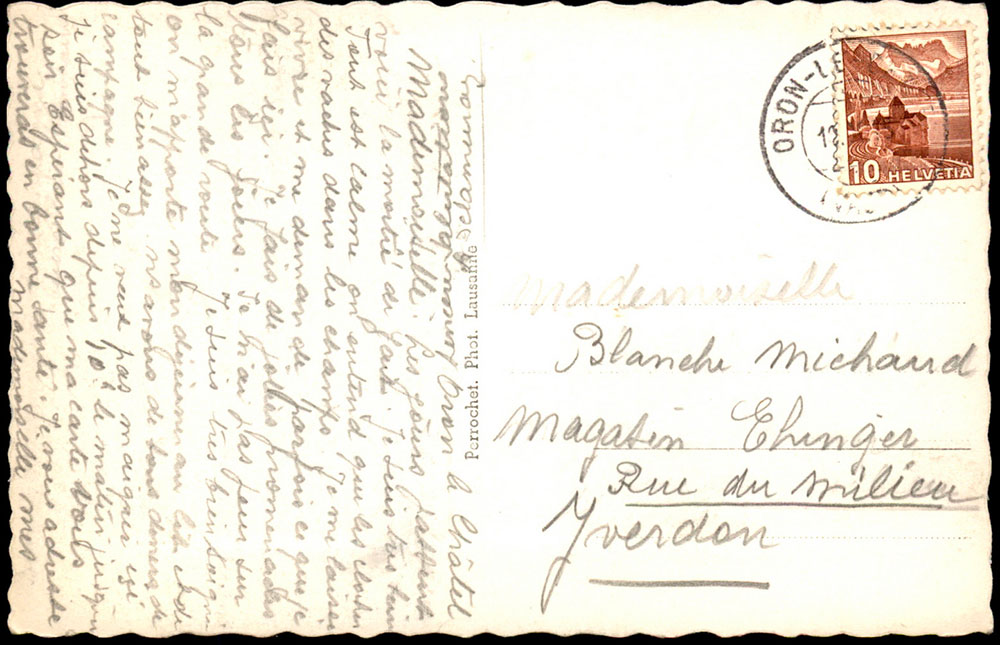 Oron le Châtel
Mademoiselle, Les jours passent
voici la moitié de fait. Je suis très bien
Tout est calme on entend que les cloches
des vaches dans les champs. Je me laisse
vivre et me demande parfois ce que je
fais ici. Je fais de jolies promenades
dans les forêts. Je n'ai pas peur sur
la grande route. Je suis très bien soignée
on m'apporte mon déjeuner au lit et de
tout bien assez nous avons de bons diners de
campagne. Je ne veut pas maigrir ici
Je suis dehors depuis 10h le matin jusqu'
soir Esperant que ma carte vous
trouveras en bonne santé. Je vous adresse
Mademoiselle mes
Perrochet. Phot. Lausanne
ORON-L
10 HELVETIA
Mademoiselle
Blanche Michaud
Magasin Ehinger
Rue du Milieu
Yverdon